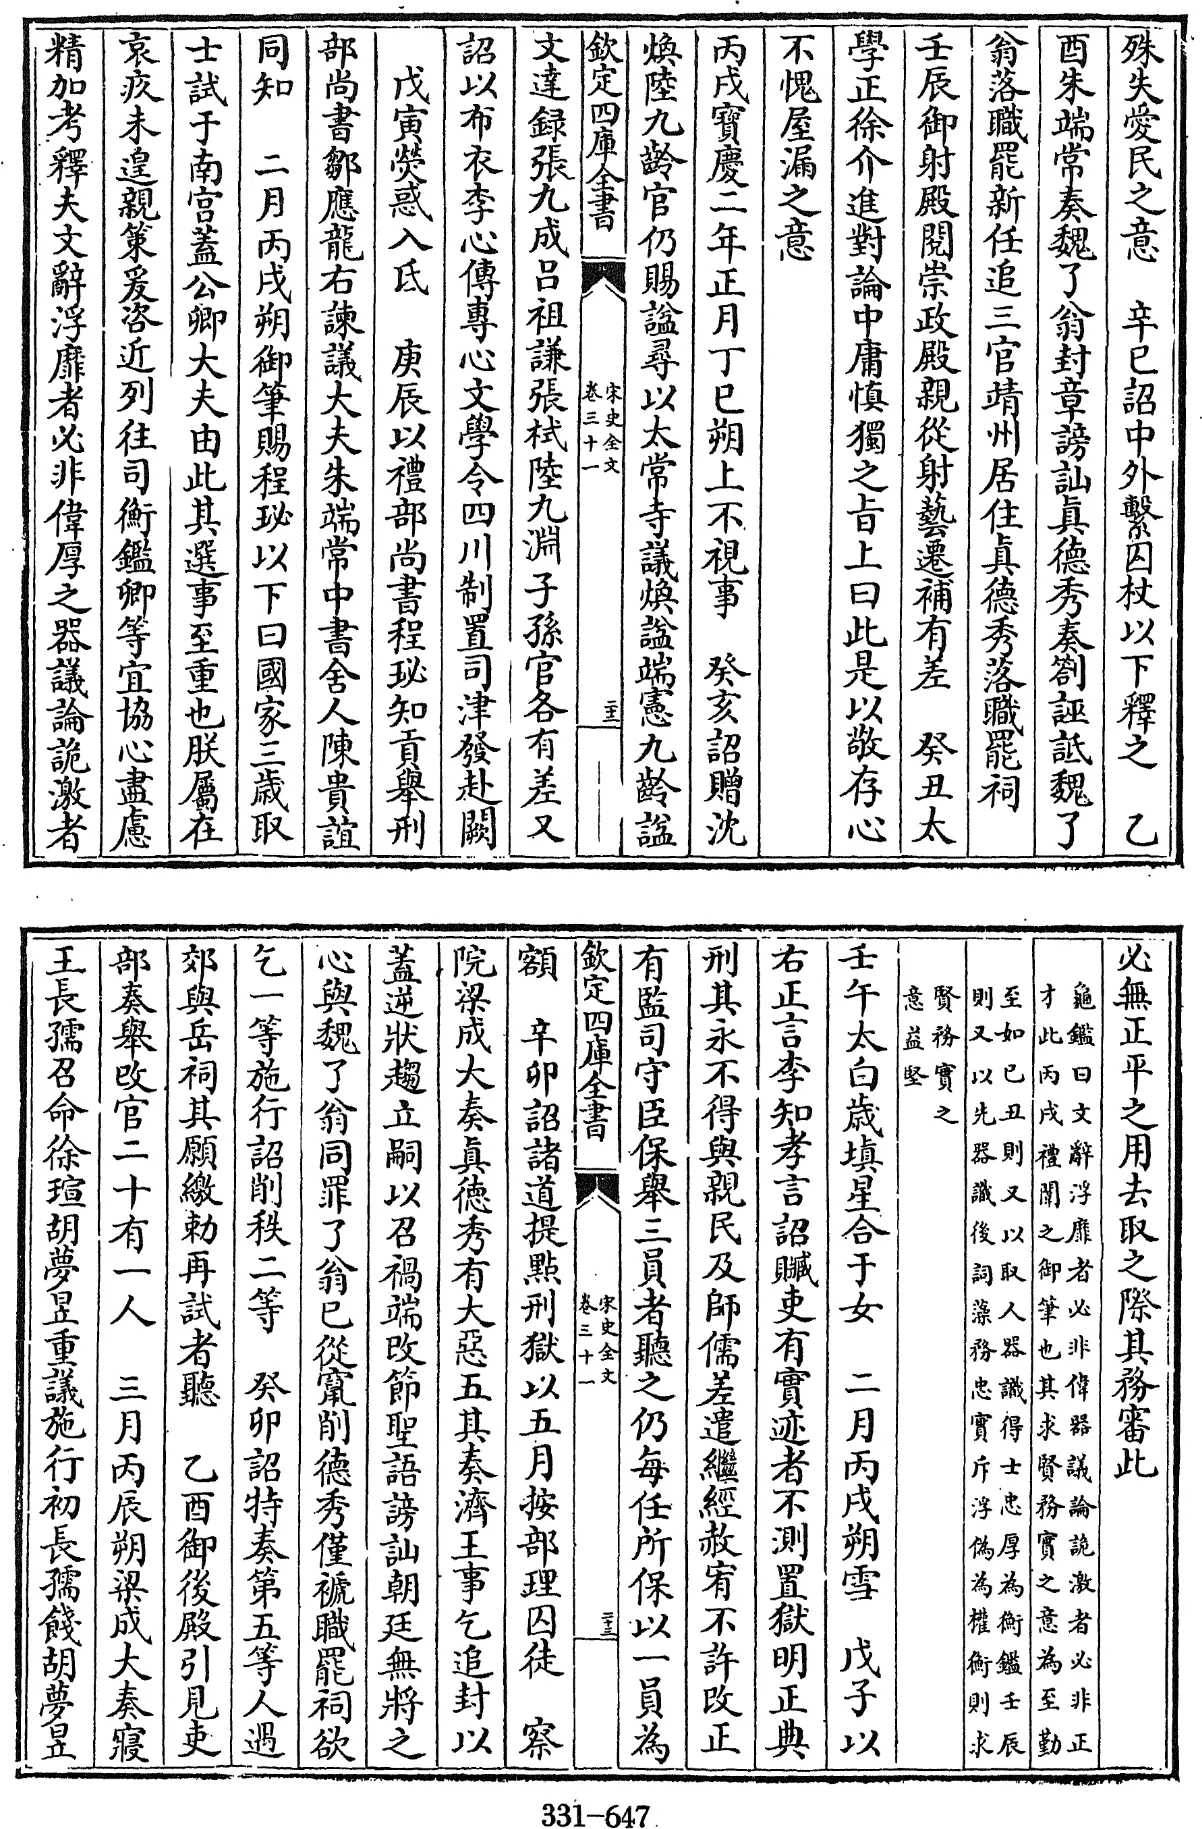 殊失愛民之意　辛巳詔中外繫囚杖以下釋之　乙
酉朱端常奏魏了翁封章謗訕眞德秀奏劄誣詆魏了
翁落職罷新任追三官靖州居住眞德秀落職罷祠
壬辰御射殿閱崇政殿親從射藝遷補有差　癸丑太
學正徐介進對論中庸愼獨之旨上曰此是以敬存心
不愧屋漏之意
丙戌寶慶二年正月丁巳朔上不視事　癸亥詔贈沈
煥陸九齡官仍賜諡尋以太常寺議煥諡端憲九齡諡
欽定四庫全書
宋史全文
卷三十一
二十二
文達録張九成呂祖謙張栻陸九淵子孫官各有差又
詔以布衣李心傳專心文學令四川制置司津發赴闕
戊寅熒惑入氐　庚辰以禮部尚書程珌知貢舉刑
部尚書鄒應龍右諫議大夫朱端常中書舍人陳貴誼
同知　二月丙戌朔御筆賜程珌以下曰國家三歲取
士試于南宮蓋公卿大夫由此其選事至重也朕屬在
哀疚未遑親策爰咨近列往司衡鑑卿等宜協心盡慮
精加考釋夫文辭浮靡者必非偉厚之器議論詭激者
必無正平之用去取之際其務審此
龜鑑曰文辭浮靡者必非偉器議論詭激者必非正
才此丙戌禮闈之御筆也其求賢務實之意為至勤
至如己丑則又以取人器識得士忠厚為衡鑑壬辰
則又以先器識後詞藻務忠實斥浮偽為權衡則求
賢務實之
意益堅
壬午太白歲填星合于女　二月丙戌朔雪　戊子以
右正言李知孝言詔贓吏有實迹者不測置獄明正典
刑其永不得與親民及師儒差遣繼經赦宥不許改正
有監司守臣保舉三員者聽之仍每任所保以一員為
欽定四庫全書
宋史全文
卷三十一
二十三
額　辛卯詔諸道提點刑獄以五月按部理囚徒　察
院梁成大奏眞德秀有大惡五其奏濟王事乞追封以
蓋逆狀趨立嗣以召禍端改節聖語謗訕朝廷無將之
心與魏了翁同罪了翁已從竄削德秀僅褫職罷祠欲
乞一等施行詔削秩二等　癸卯詔特奏第五等人遇
郊與岳祠其願繳勅再試者聽　乙酉御後殿引見吏
部奏舉改官二十有一人　三月丙辰朔梁成大奏寢
王長孺召命徐瑄胡夢昱重議施行初長孺餞胡夢昱
331-647